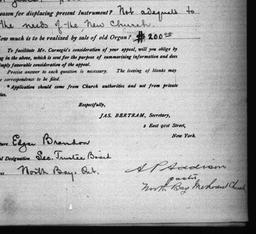 eason for displacing present Instrument? Not adequate to
the needs of the New Church.
ow much is to be realised by sale of old Organ? $200.00
To facilitate Mr. Carnegie's consideration of your appeal, will you oblige by
ng in the above, which is sent for the purpose of summarising information and does
imply favorable consideration of the appeal.
Precise answer to each question is necessary. The issuing of blanks may
be correspondingly delayed.
* Application should come from Church authorities and not from private
Respectfully,
JAS. BERTRAM, Secretary,
2 East 91st Street,
New York.
Edgar Brandon
l Designation. Sec. Trustee Board
North Bay. Ont.
A P Addison
Pastor
North Bay Methodist Church